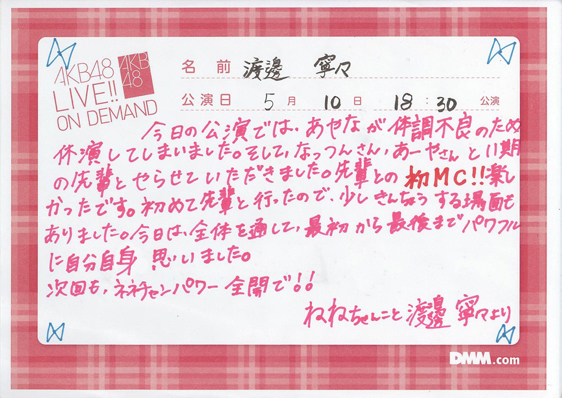 AKB48
LIVE!!
ON DEMAND
AKB
48
名 前 渡邊 寧々
公演日 5月 10日 18:30 公演
今日の公演では、あやなが体調不良のため
休演してしまいました。そして、なっつんさん、あーやさんと11期
の先輩とやらせていただきました。先輩との初MC!!楽し
かったです。初めて先輩と行ったので、少しきんちょうする場面も
ありました。今日は、全体を通して、最初から最後までパワフル
に自分自身 思いました。
次回も、ネネチャンパワー全開で!!
ねねちゃんこと渡邊 寧々より
DMM.com